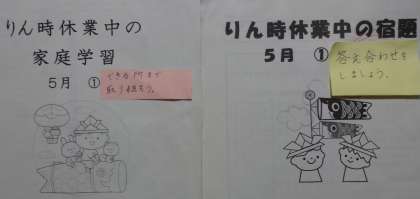 りん時休業中の
家庭学習
5月 ①
できる所まで
取り組もう。
りん時休業中の宿題
5月 ①
答え合わせを
しましょう。